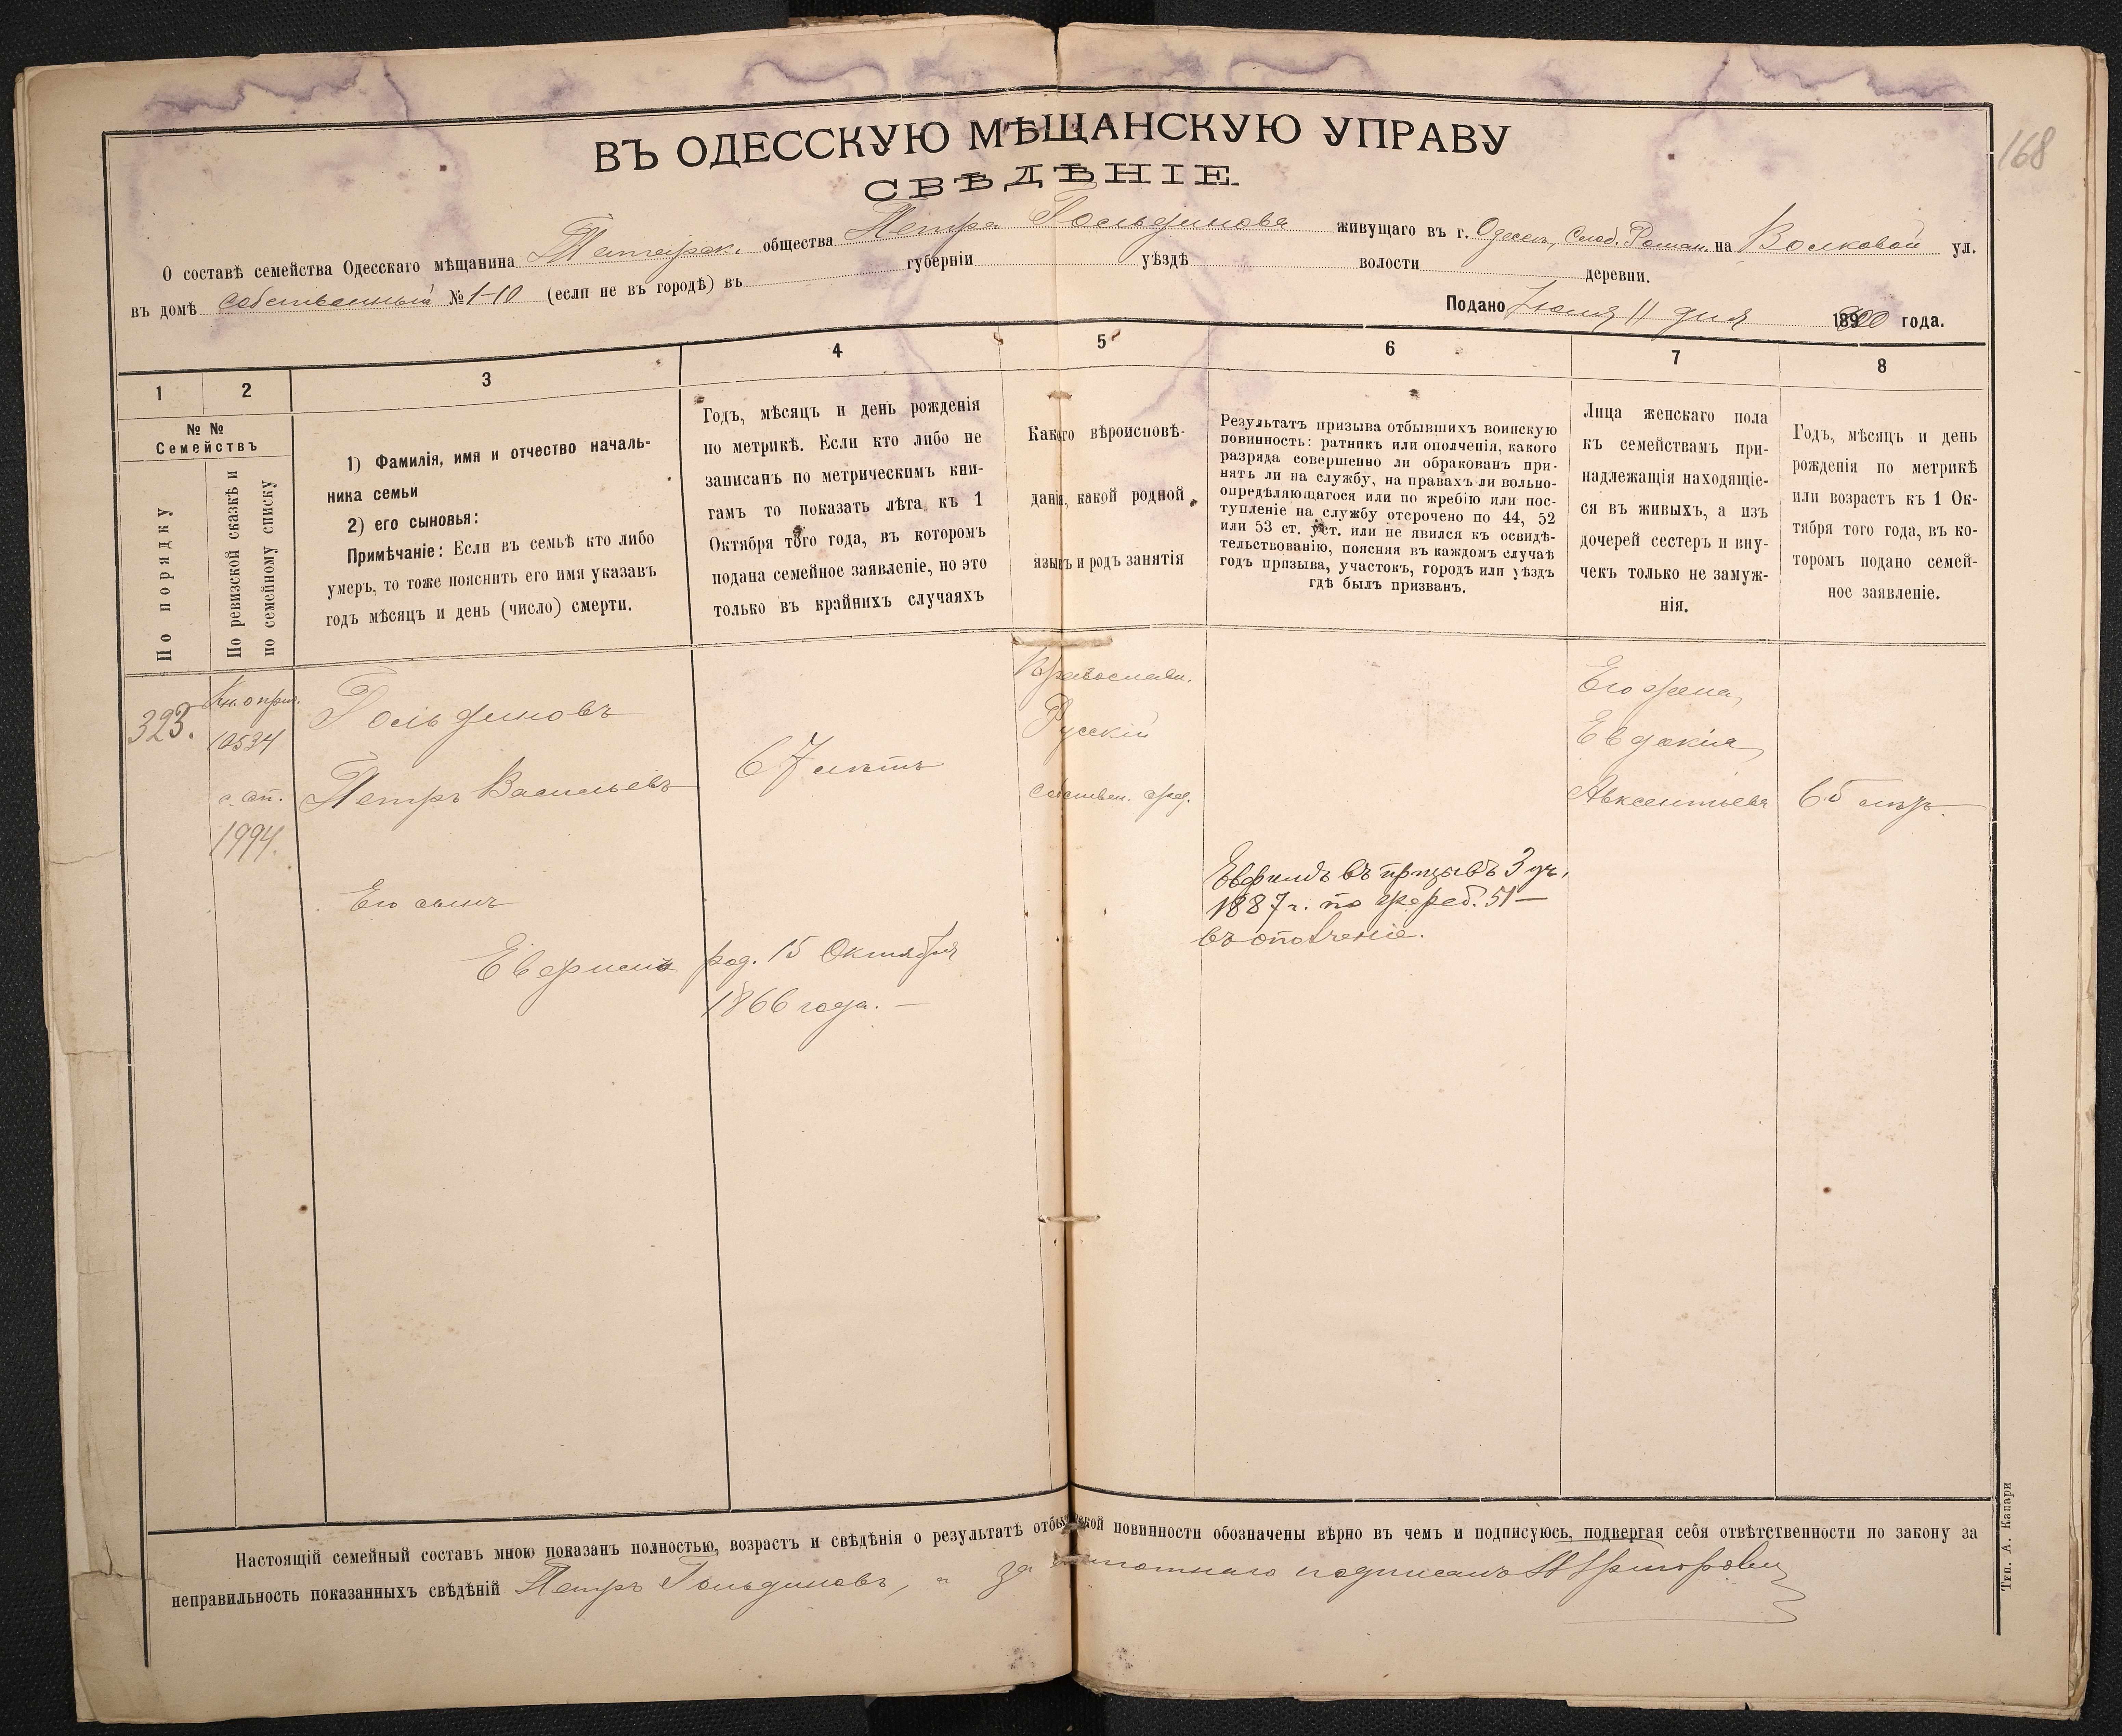 168
ВЪ ОДЕССКУЮ МѢЩАНСКУЮ УПРАВУ
СВѢДѢНІЕ.
О составѣ семейства Одесскаго мѣщанина общества Петра Гольдинова живущаго въ г. Одессѣ, Слоб. Роман. на Волковой ул.
въ домѣ собственный № 1-10 (если не въ городѣ) въ губерніи уѣздѣ волости деревни.
Подано 11 дня 1900 года.
1
2
3
4
5
6
7
8
№ №
Семействъ
По порядку
По ревизской сказкѣ и
по семейному списку
1) Фамилія, имя и отчество началь-
ника семьи
2) его сыновья:
Примѣчаніе: Если въ семьѣ кто либо
умеръ, то тоже пояснить его имя указавъ
годъ мѣсяцъ и день (число) смерти.
Годъ, мѣсяцъ и день рожденія
по метрикѣ. Если кто либо не
записанъ по метрическимъ кни-
гамъ то показать лѣта къ 1
Октября того года, въ которомъ
подана семейное заявленіе, но это
только въ крайнихъ случаяхъ
Какого вѣроисповѣ-
данія, какой родной
языкъ и родъ занятія
Результатъ призыва отбывшихъ воинскую
повинность: ратникъ или ополченія, какого
разряда совершенно ли обракованъ при-
нятъ ли на службу, на правахъ ли вольно-
опредѣляющагося или по жребію или пос-
тупленіе на службу отсрочено по 44, 52
или 53 ст. уст. или не явился къ освидѣ-
тельствованію, поясняя въ каждомъ случаѣ
годъ призыва, участокъ, городъ или уѣздъ
гдѣ былъ призванъ.
Лица женскаго пола
къ семействамъ при-
надлежащія находящіе-
ся въ живыхъ, а изъ
дочерей сестеръ и вну-
чекъ только не замуж-
нія.
Годъ, мѣсяцъ и день
рожденія по метрикѣ
или возрастъ къ 1 Ок-
тября того года, въ ко-
торомъ подано семей-
ное заявленіе.
323.
10534
с. сп.
1994.
Гольдиновъ
Петръ Васильевъ
67 лѣтъ
Православн.
Русскій
Его жена
Евдокія
Авксентіева
65 лѣтъ.
Его сынъ
Евфимъ
род. 15 Октября
1866 года. —
Евфимъ въ призывъ 3 уч.
1887 г. по жереб. 51 —
въ ополченіе.
Настоящій семейный составъ мною показанъ полностью, возрастъ и свѣдѣнія о результатѣ ской повинности обозначены вѣрно въ чемъ и подписуюсь, подвергая себя отвѣтственности по закону за
неправильность показанныхъ свѣдѣній Петръ Гольдиновъ, за подписалъ
Тип. А. Капари